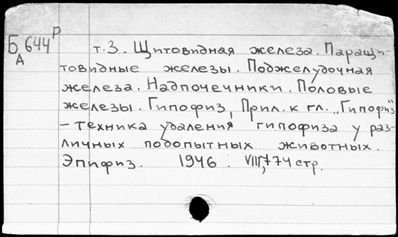 Б 644 Р
А
т.3. Щитовидная железа. Паращи-
товидные железы. Поджелудочная
железа. Надпочечники. Половые
железы. Гипофиз, Прил. к гл. „Гипофиз"
- техника удаления гипофиза у раз-
личных подопытных животных.
Эпифиз. 1946. VIII, 774 стр.